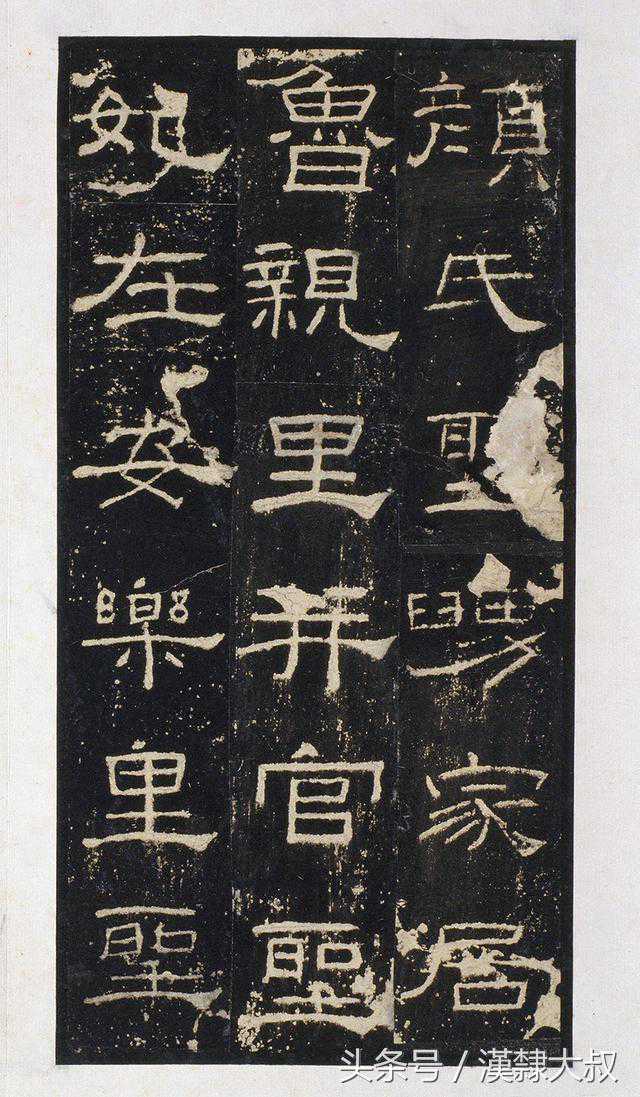 顏氏聖舅家居
魯親里并官聖
妃在安樂里聖
头条号 / 漢隸大叔